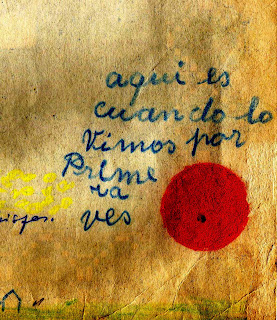 aqui es
cuando lo
vimos por
Prime
ra
ves